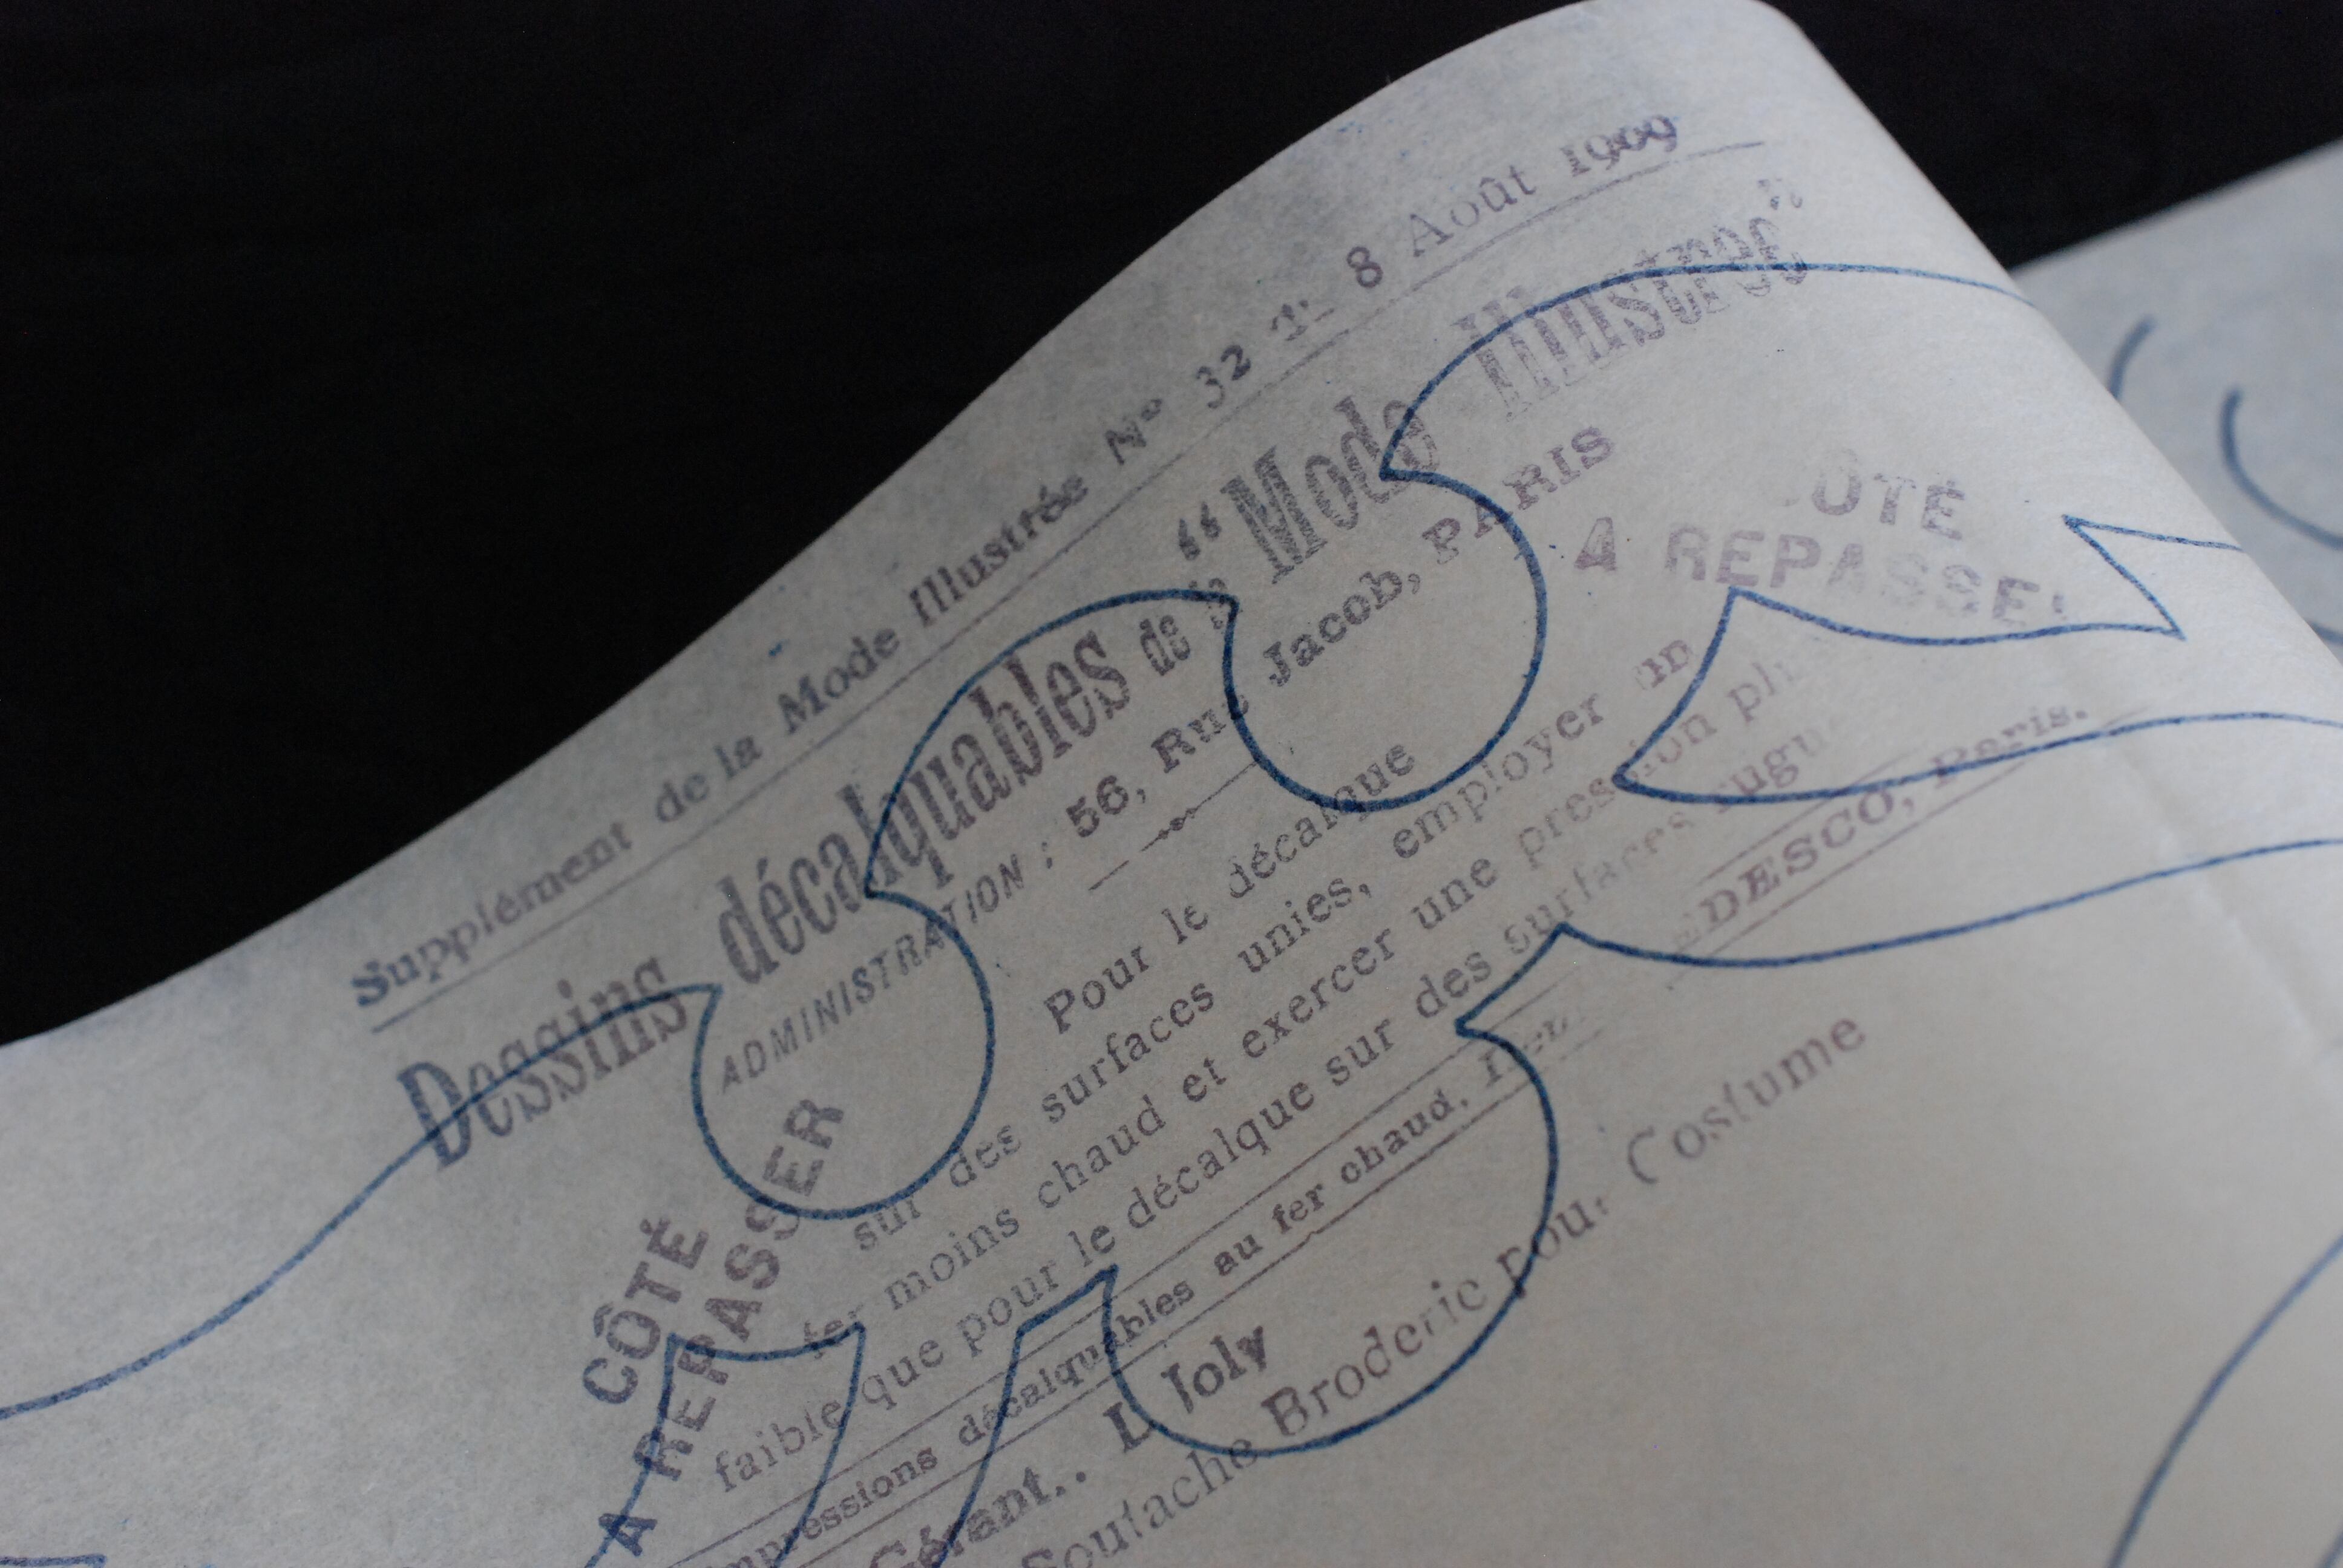 Supplément de la Mode Illustrée Nº 32 8 Août 1909
Dessins décalquables de la “Mode Illustrée”
ADMINISTRATION : 56, Rue Jacob, PARIS
CÔTÉ
A REPASSER
Pour le décalque
sur des surfaces unies, employer un
fer moins chaud et exercer une pression
faible que pour le décalque sur des surfaces
décalquables au fer chaud, Paris.
Gérant.. L. Joly
Soutache Broderie pour Costume
CÔTÉ
A REPASSER